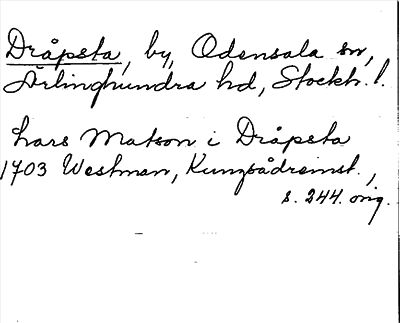 Dråpsta, by, Odensala sn,
Ärlinghundra hd, Stockh. l.
Lars Matson i Dråpsta
1703 Westman, Kungsådreinst.,
s. 244. orig.